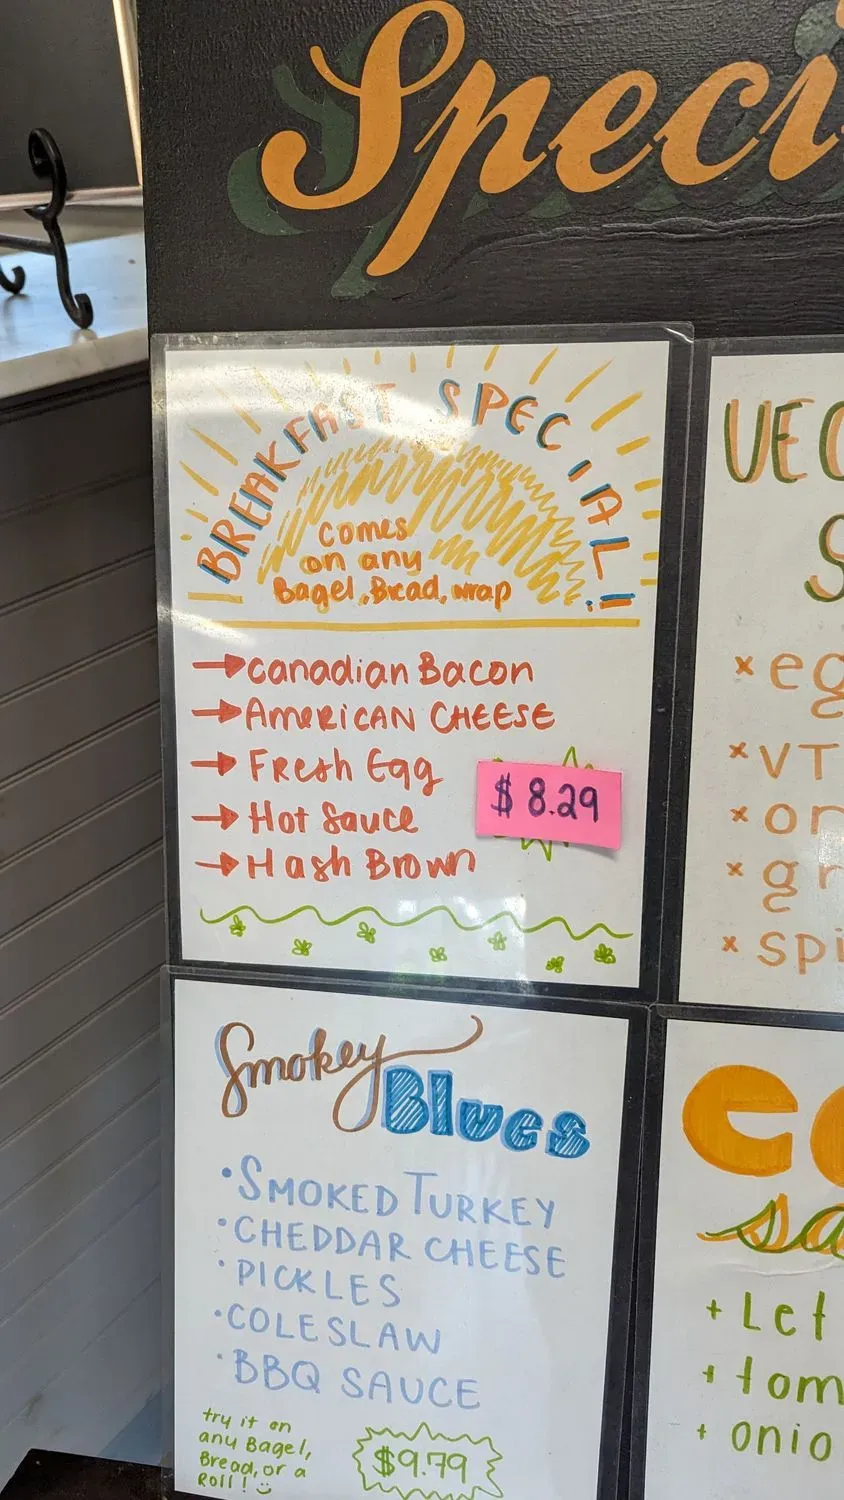 Speci
BREAKFAST SPECIAL!
comes
on any
Bagel, Bread, wrap
canadian Bacon
AMERICAN CHEESE
Fresh Egg
$ 8.29
Hot Sauce
Hash Brown
Smokey
Blues
• SMOKED TURKEY
• CHEDDAR CHEESE
• PICKLES
• COLESLAW
• BBQ SAUCE
try it on
any Bagel,
Bread, or a
Roll!
$9.79
VEG
S
× eg
× VT
× on
× gr
× spi
sa
+ Let
+ tom
+ onio